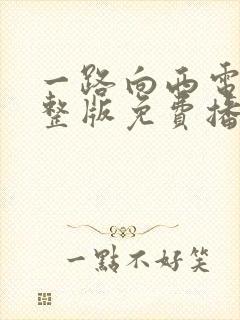 一路向西電
整版免費播
一點不好笑